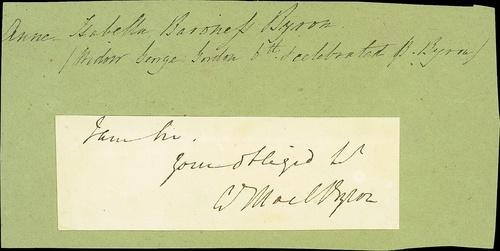 Anne Isabella Baroness Byron.
(Widow George Gordon 6th & celebrated B. Byron)
I am Sir.
Your obliged
Noel Byron